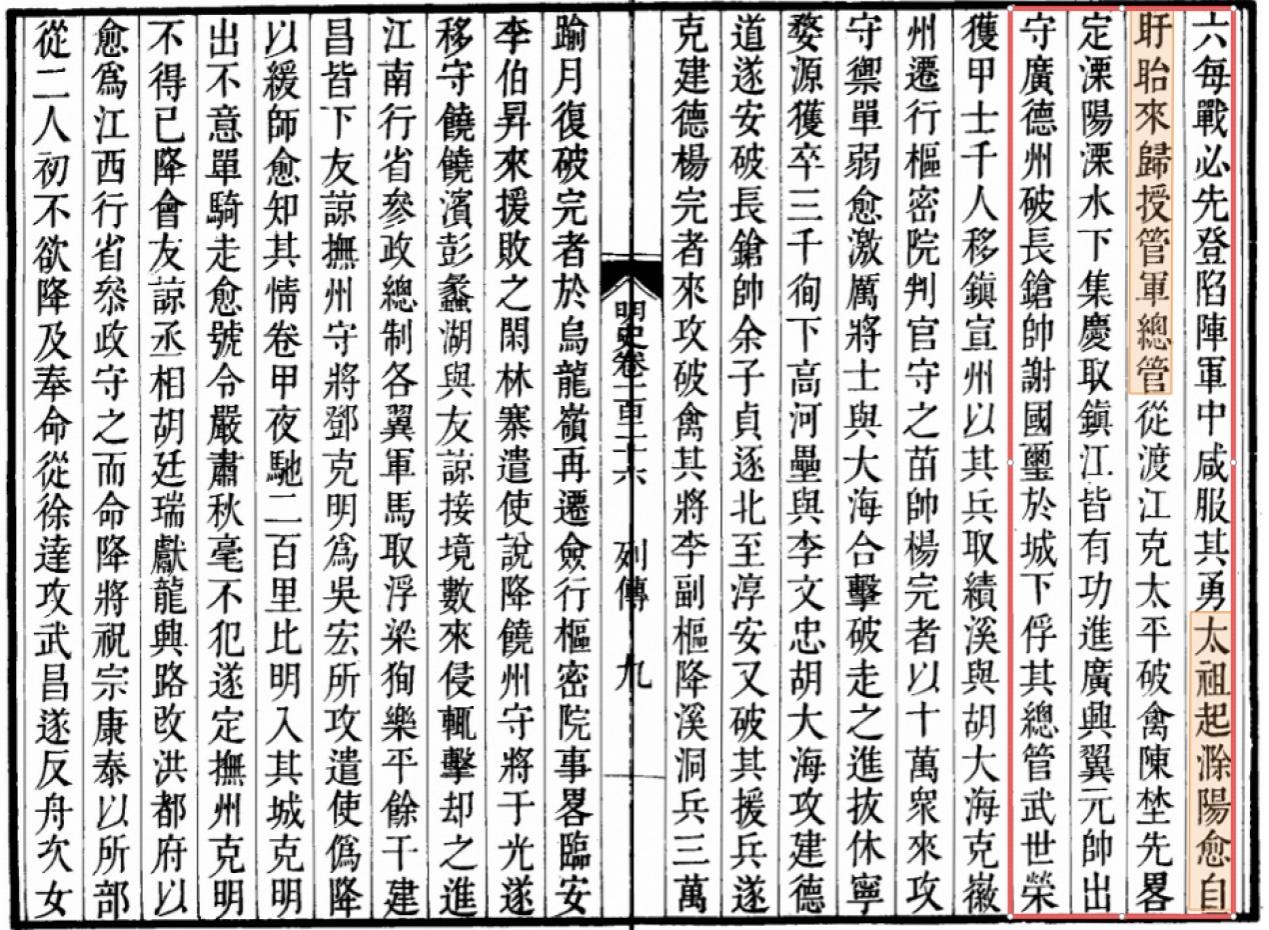 六每戰必先登陷陣軍中咸服其勇太祖起滁陽愈自
盱眙來歸授管軍總管從渡江克太平破禽陳埜先畧
定溧陽溧水下集慶取鎮江皆有功進廣興翼元帥出
守廣德州破長鎗帥謝國璽於城下俘其總管武世榮
獲甲士千人移鎮宣州以其兵取績溪與胡大海克徽
州遷行樞密院判官守之苗帥楊完者以十萬衆來攻
守禦單弱愈激厲將士與大海合擊破走之進抜休寧
婺源獲卒三千徇下高河壘與李文忠胡大海攻建德
道遂安破長鎗帥余子貞逐北至淳安又破其援兵遂
克建德楊完者來攻破禽其將李副樞降溪洞兵三萬
明史卷一百二十六 列傳 九
踰月復破完者於烏龍嶺再遷僉行樞密院事畧臨安
李伯昇來援敗之閑林寨遣使說降饒州守將于光遂
移守饒饒濱彭蠡湖與友諒接境數來侵輒擊却之進
江南行省參政總制各翼軍馬取浮梁徇樂平餘干建
昌皆下友諒撫州守將鄧克明爲吳宏所攻遣使僞降
以緩師愈知其情卷甲夜馳二百里比明入其城克明
出不意單騎走愈號令嚴肅秋毫不犯遂定撫州克明
不得已降會友諒丞相胡廷瑞獻龍興路改洪都府以
愈爲江西行省叅政守之而命降將祝宗康泰以所部
從二人初不欲降及奉命從徐達攻武昌遂反舟次女